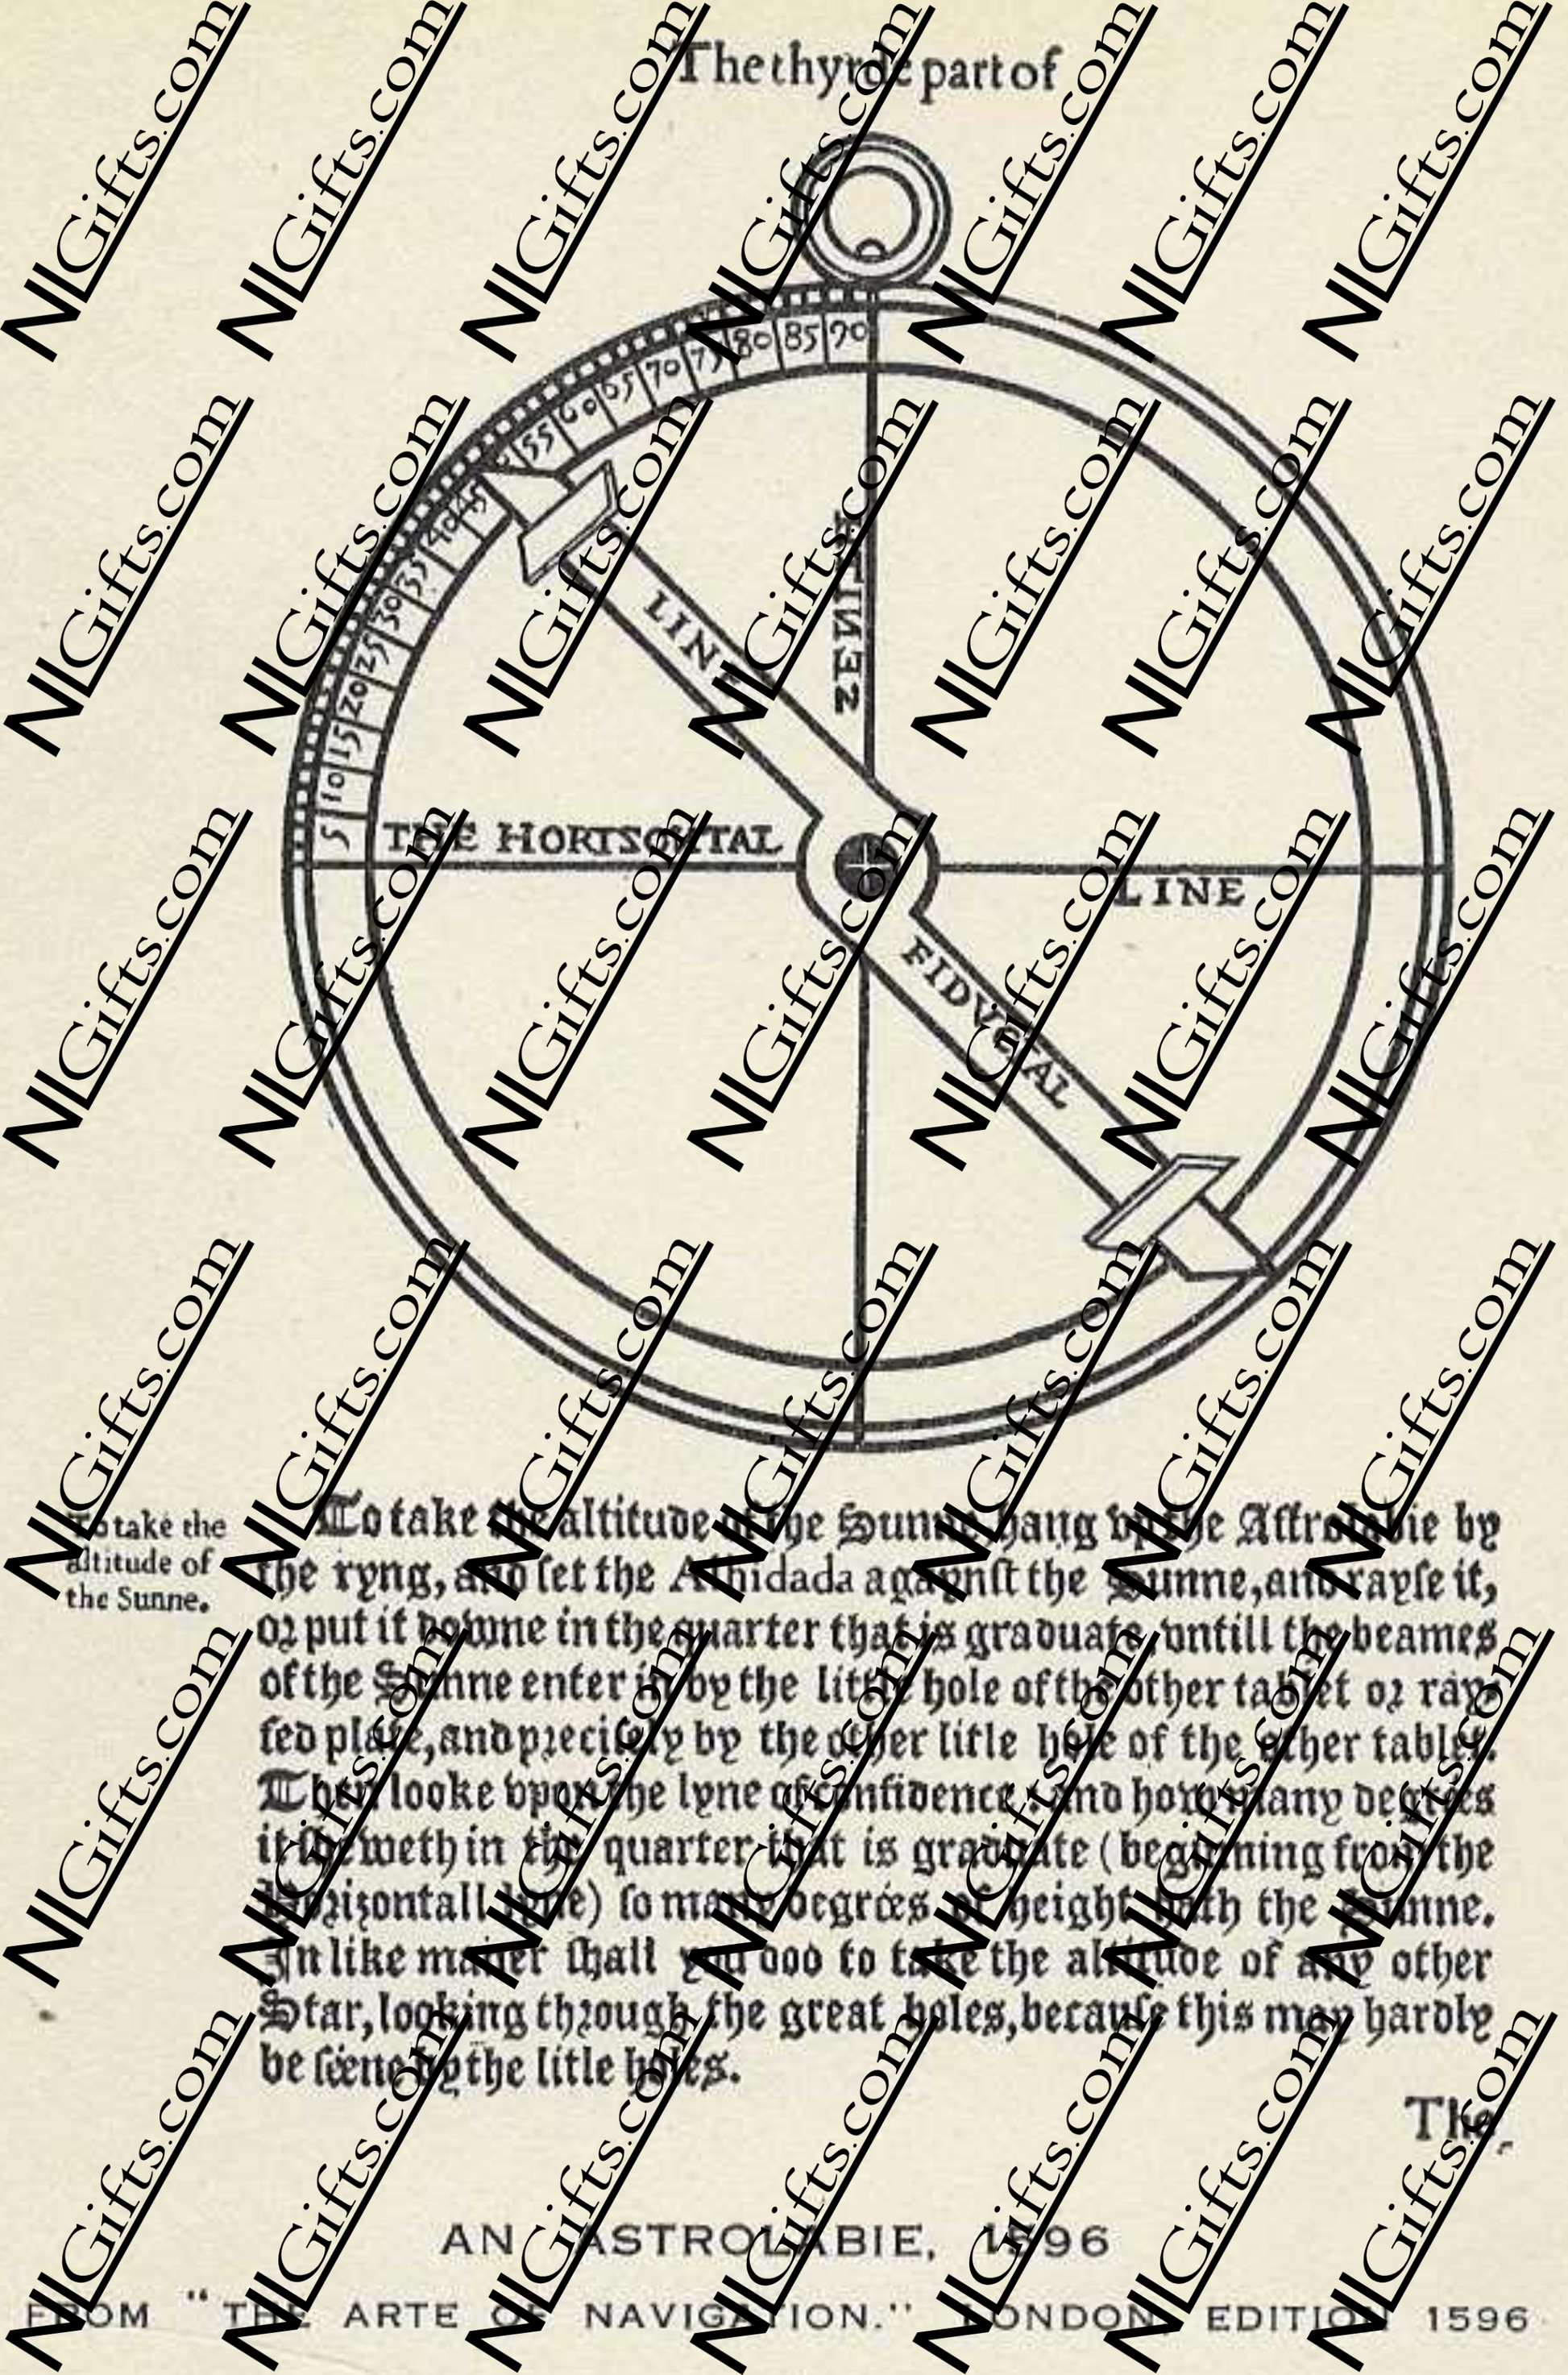 The thyrde part of
5 10 15 20 25 30 35 40 45 55 60 65 70 75 80 85 90
LINE
THE HORIZONTAL
LINE
FIDVCIAL
To take the
altitude of
the Sunne.
To take the altitude of the Sunne, hang vp the Astrolabie by
the ryng, and set the Alhidada agaynst the Sunne, and rayse it,
or put it downe in the quarter that is graduate, vntill the beames
of the Sunne enter in by the little hole of the other tablet or ray-
sed plate, and precisely by the other litle hole of the other tablet.
Then looke vpon the lyne of confidence, and how many degrees
it sheweth in the quarter that is graduate (beginning from the
Horizontall lyne) so many degrées of height hath the Sunne.
In like maner shall you doo to take the altitude of any other
Star, looking through the great holes, because this may hardly
be séene by the litle holes.
The
AN ASTROLABIE, 1596
FROM "THE ARTE OF NAVIGATION." LONDON, EDITION 1596
NLGifts.com